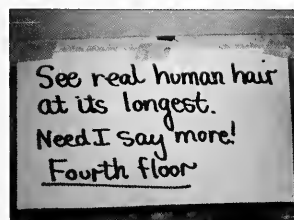 See real human hair
at its longest.
Need I say more!
Fourth floor